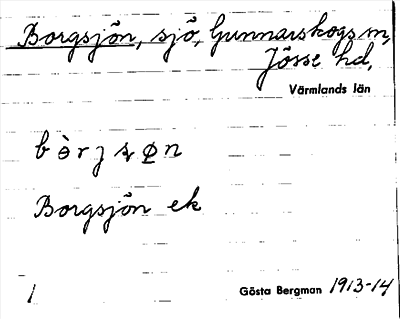 Borgsjön, sjö, Gunnarskogs sn,
Jösse hd,
Värmlands län
bòrjsøn
Borgsjön ek
1
Gösta Bergman 1913-14